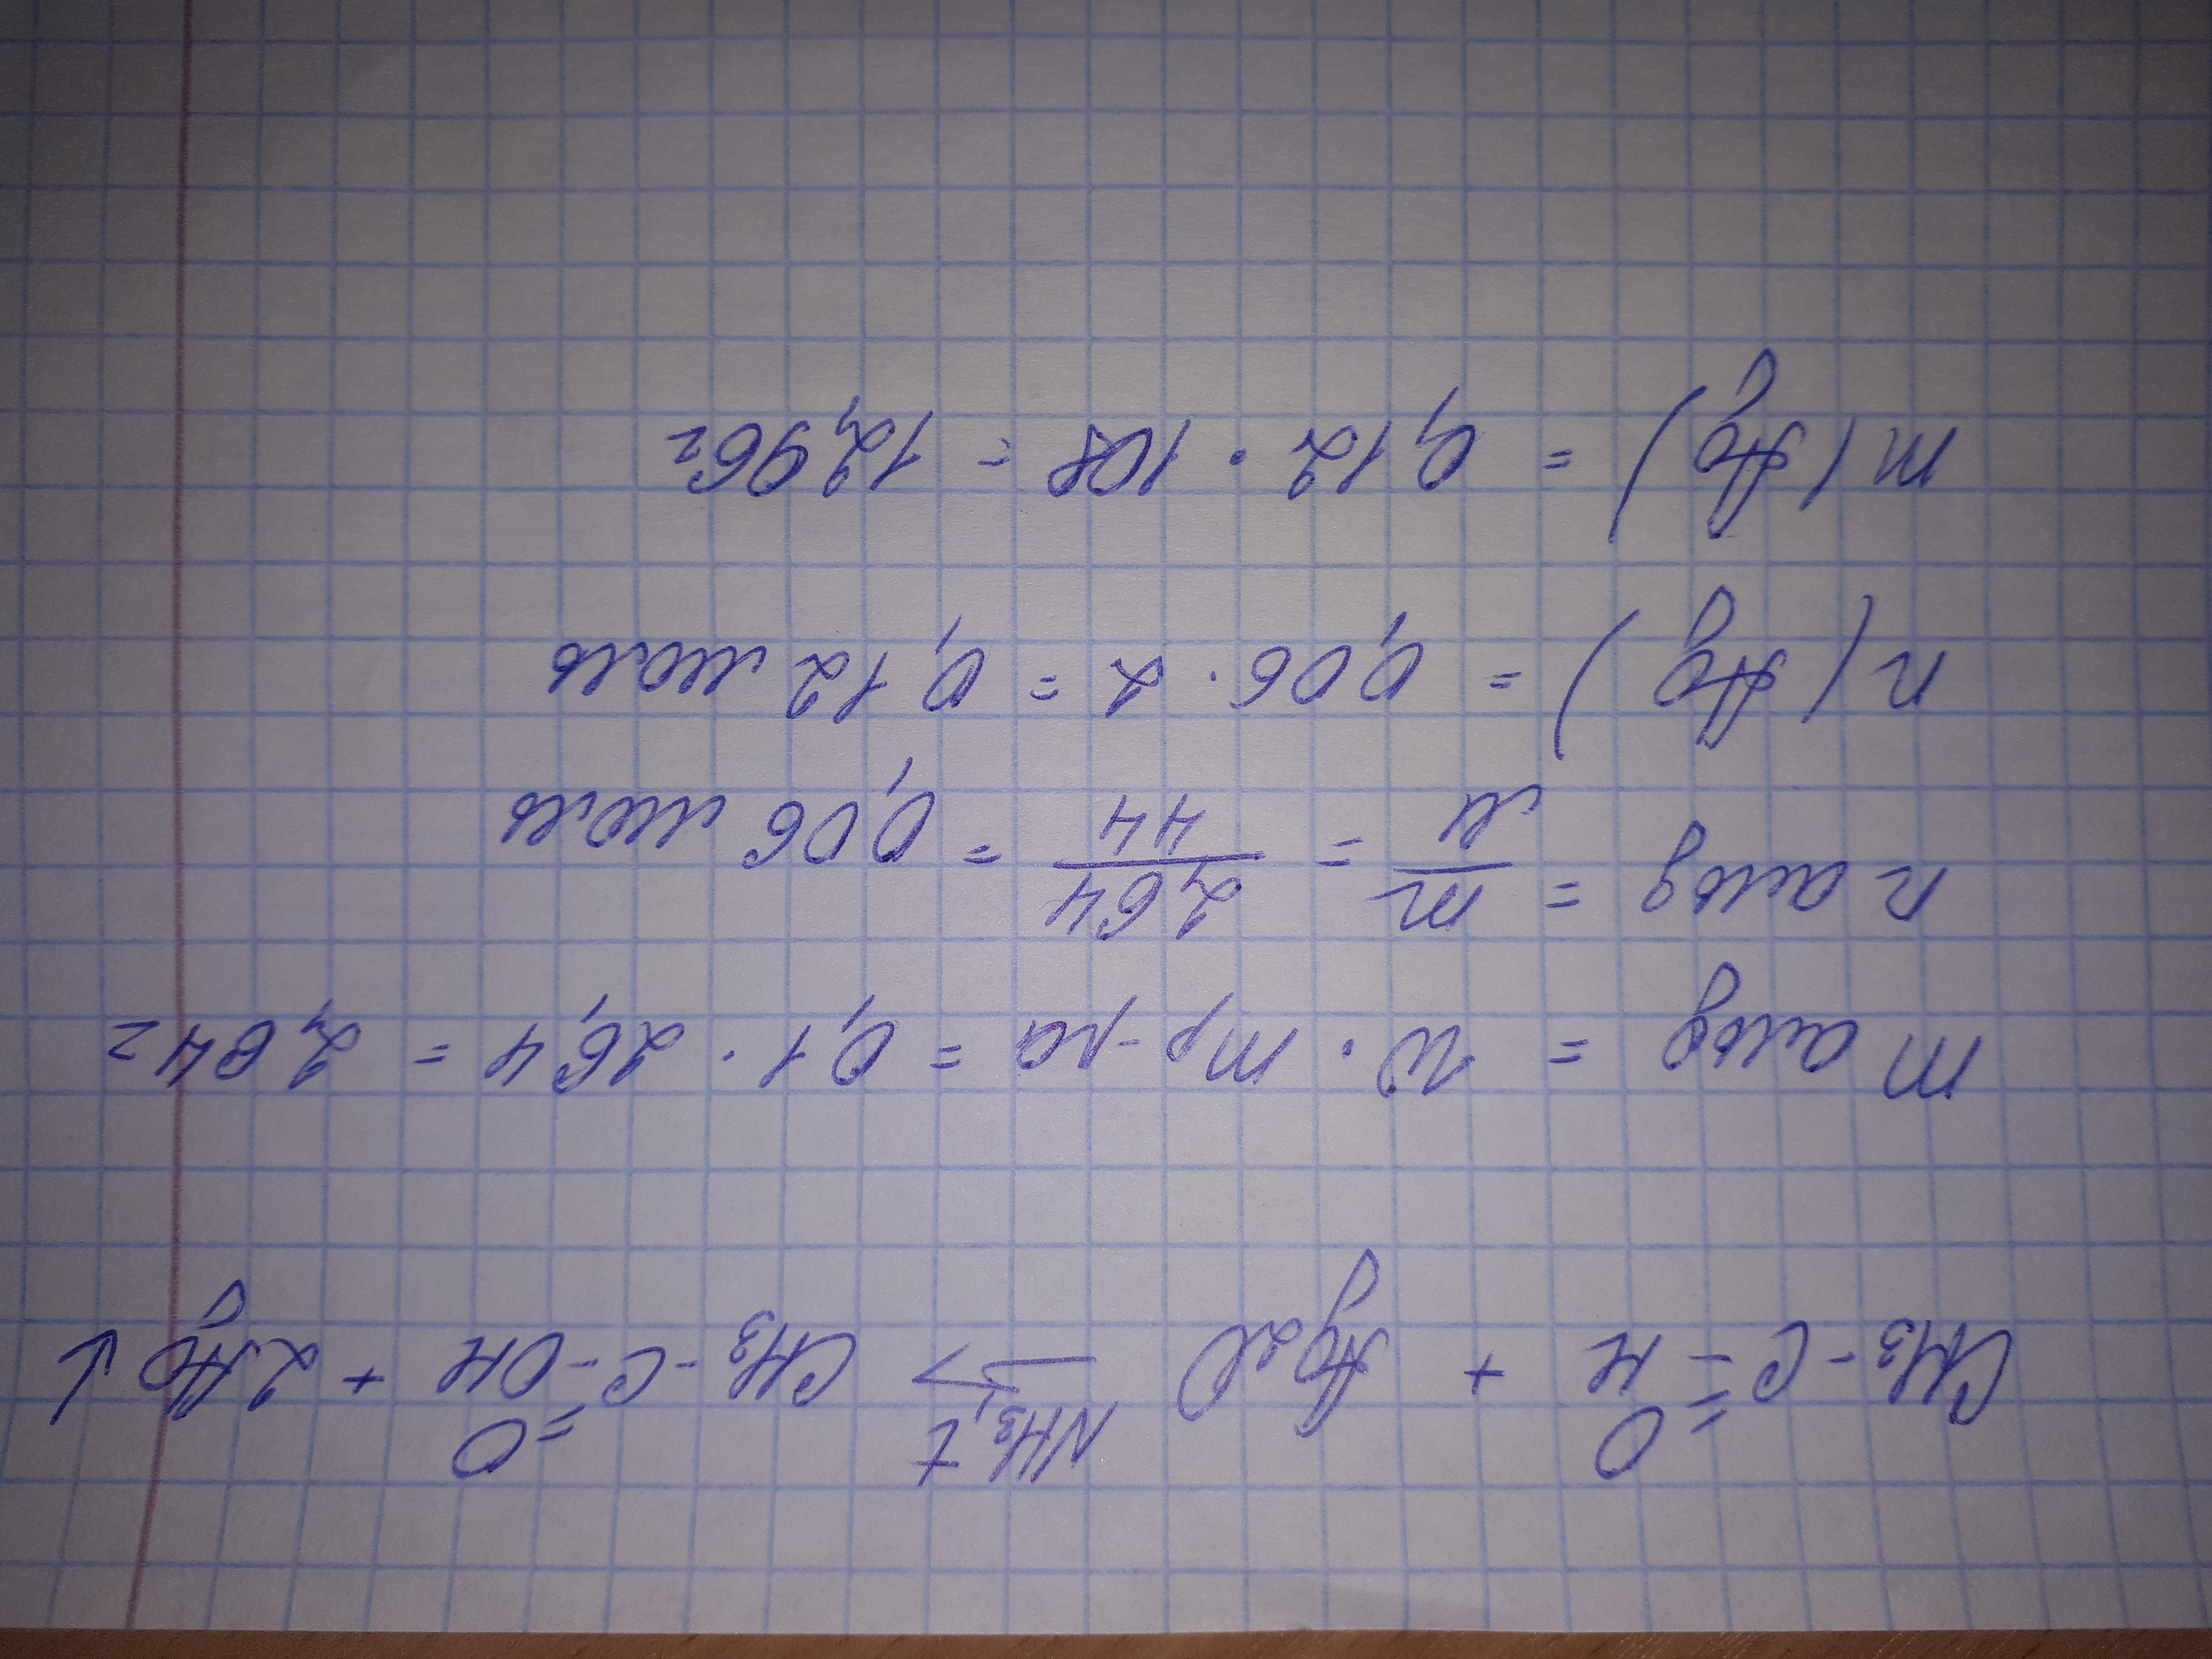 O O
CH3-C=-H + Ag2O NH3,t → CH3-C=-OH + 2Ag↓
m альд = w · mр-ра = 0,1 · 26,4 = 2,64г
n альд = m/M = 2,64/44 = 0,06 моль
n(Ag) = 0,06 · 2 = 0,12 моль
m(Ag) = 0,12 · 108 = 12,96г